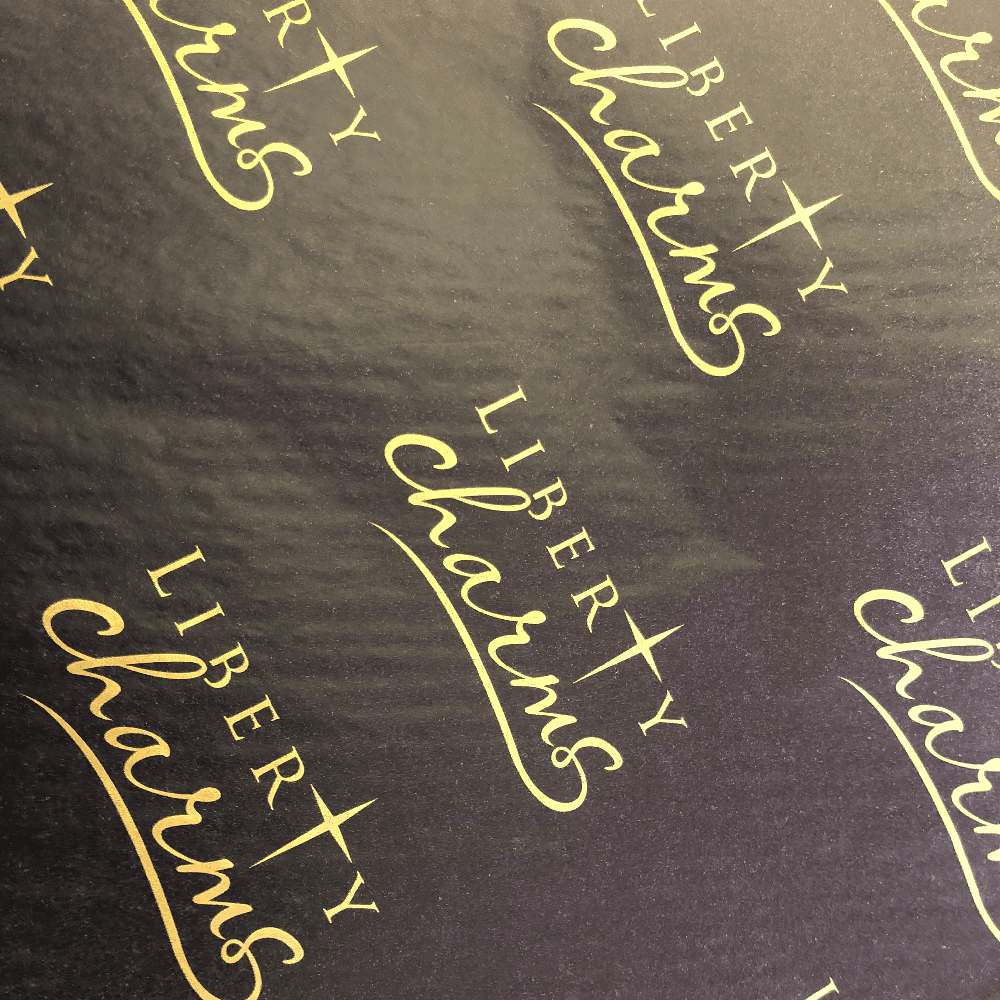 RTY
arms
LIBERTY
Charms
ar
TY
LIBERTY
Charms
LIBERTY
Charms
LI
Char
L